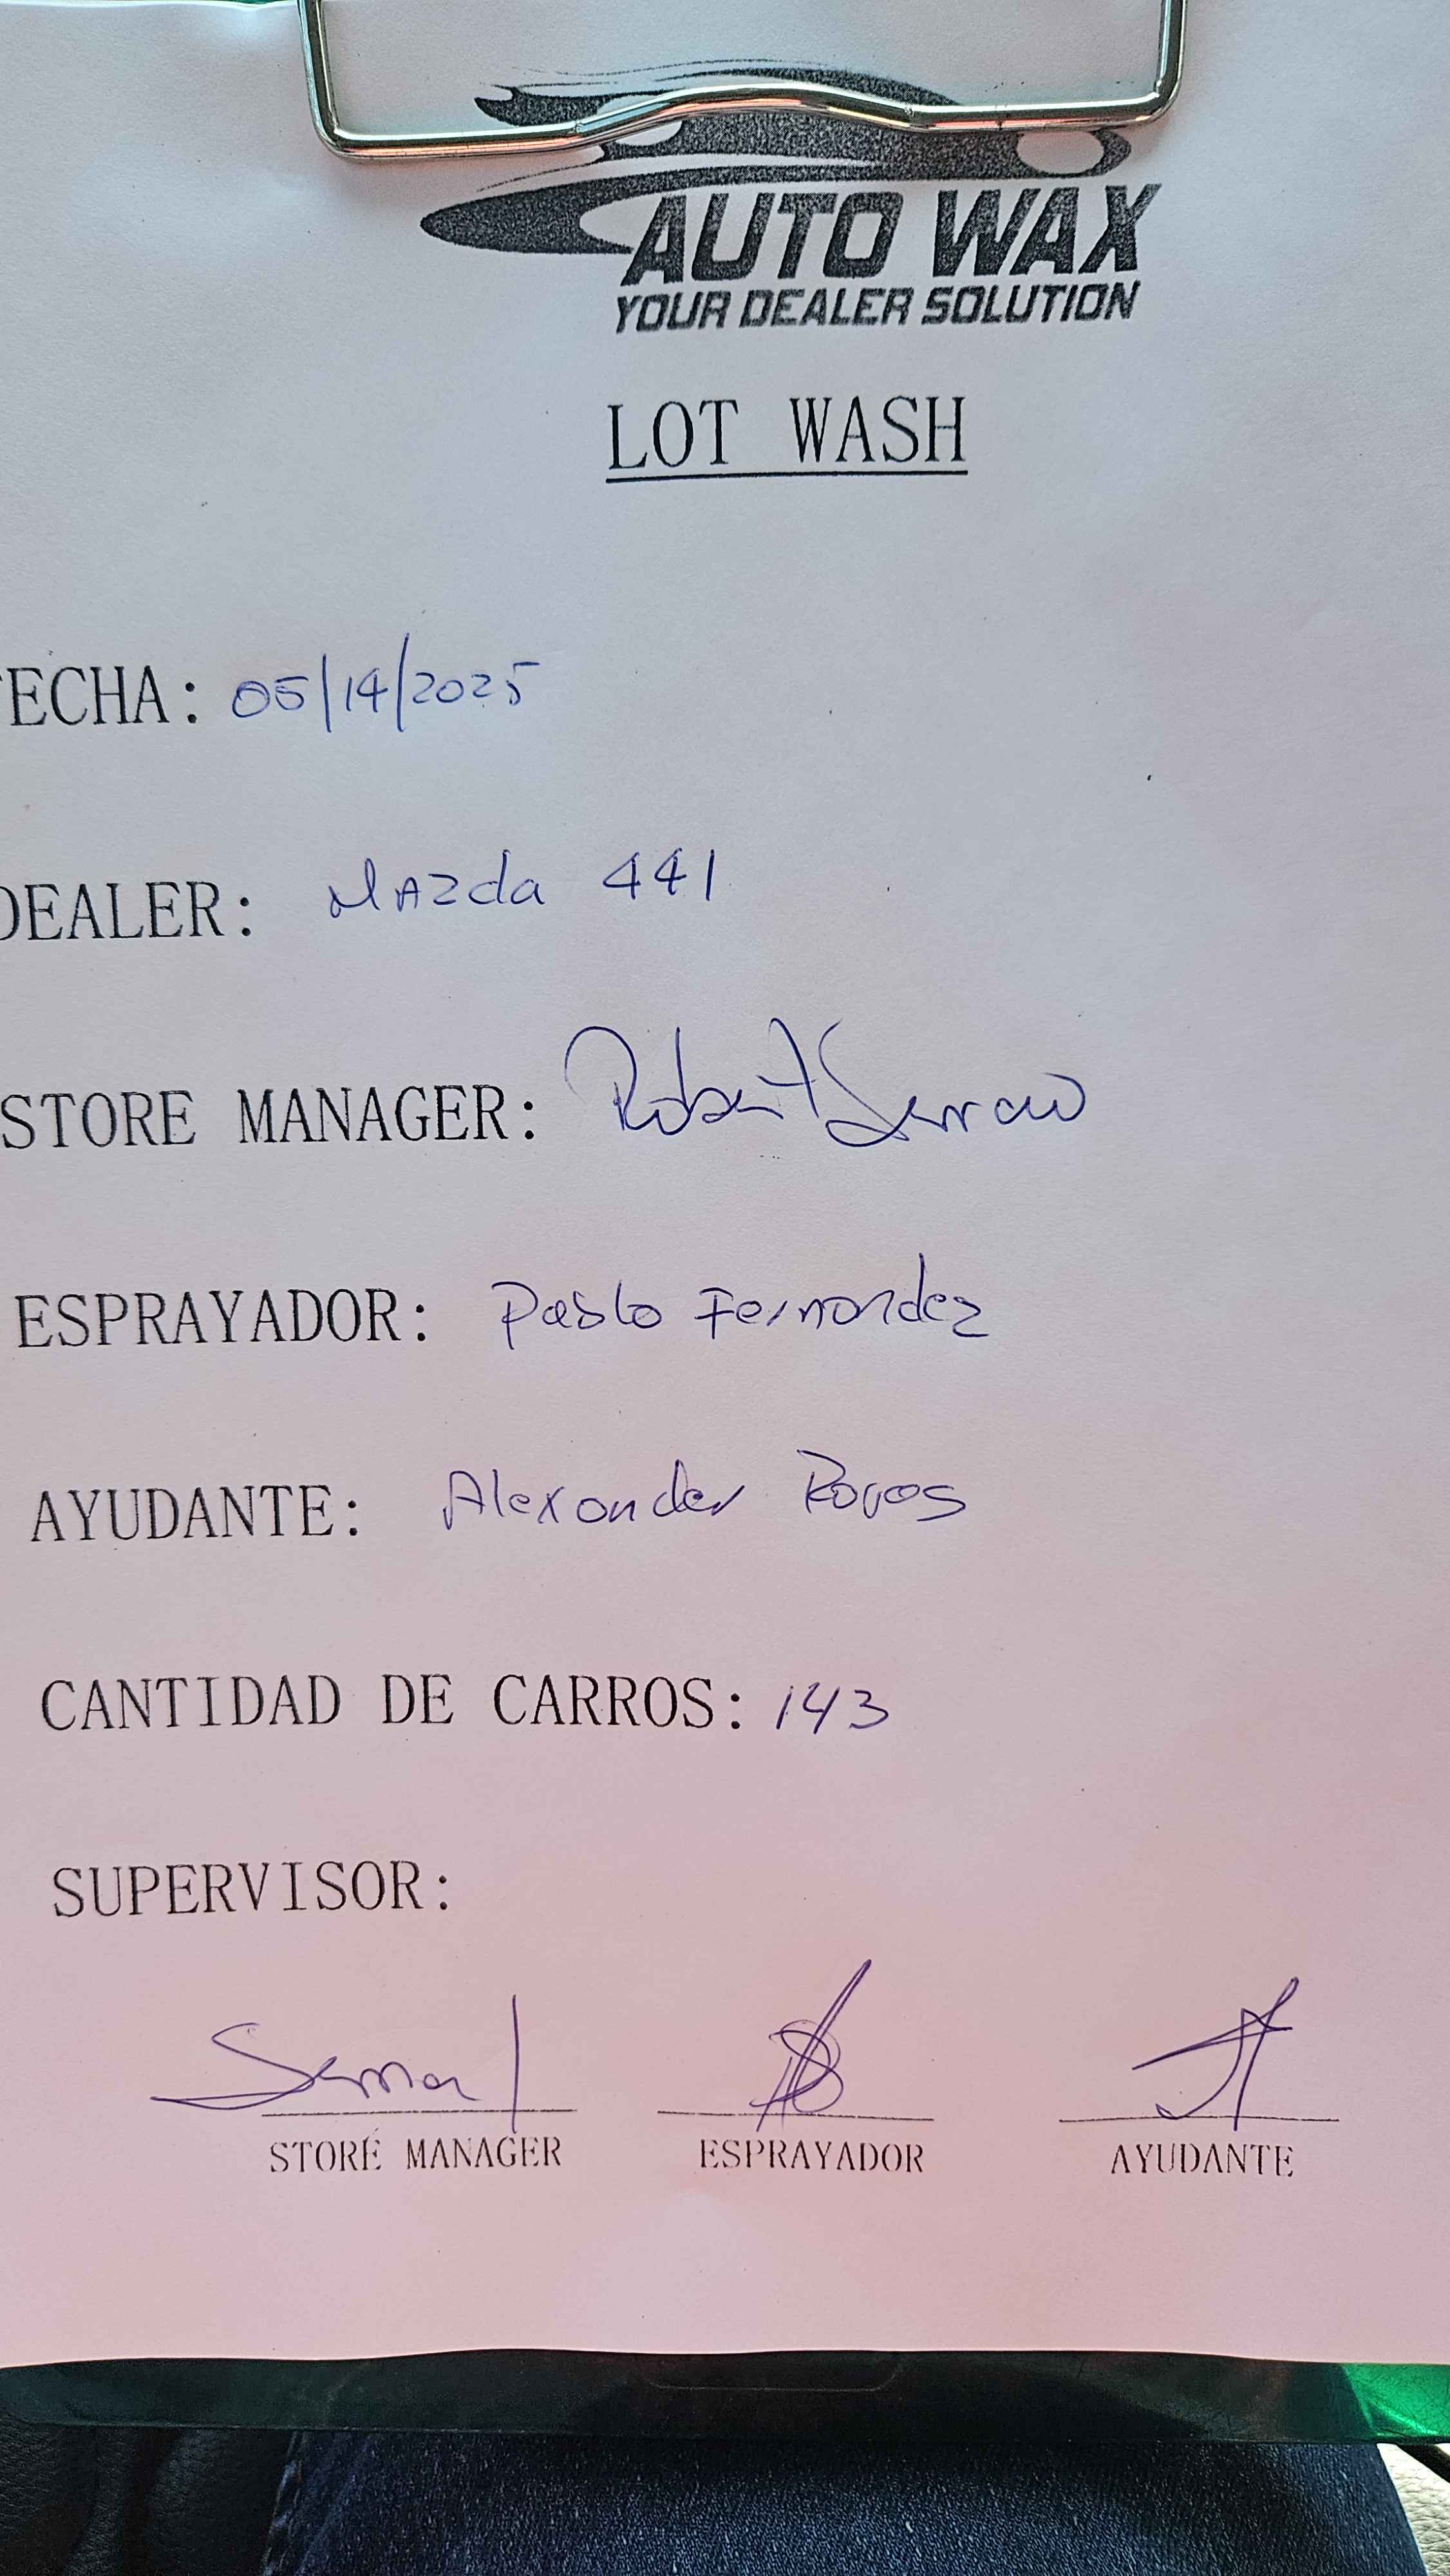 AUTO WAX
YOUR DEALER SOLUTION
LOT WASH
FECHA: 05/14/2025
DEALER: Mazda 441
STORE MANAGER: Robert Serrano
ESPRAYADOR: Pablo Fernandez
AYUDANTE: Alexander Rojas
CANTIDAD DE CARROS: 143
SUPERVISOR:
STORE MANAGER ESPRAYADOR AYUDANTE